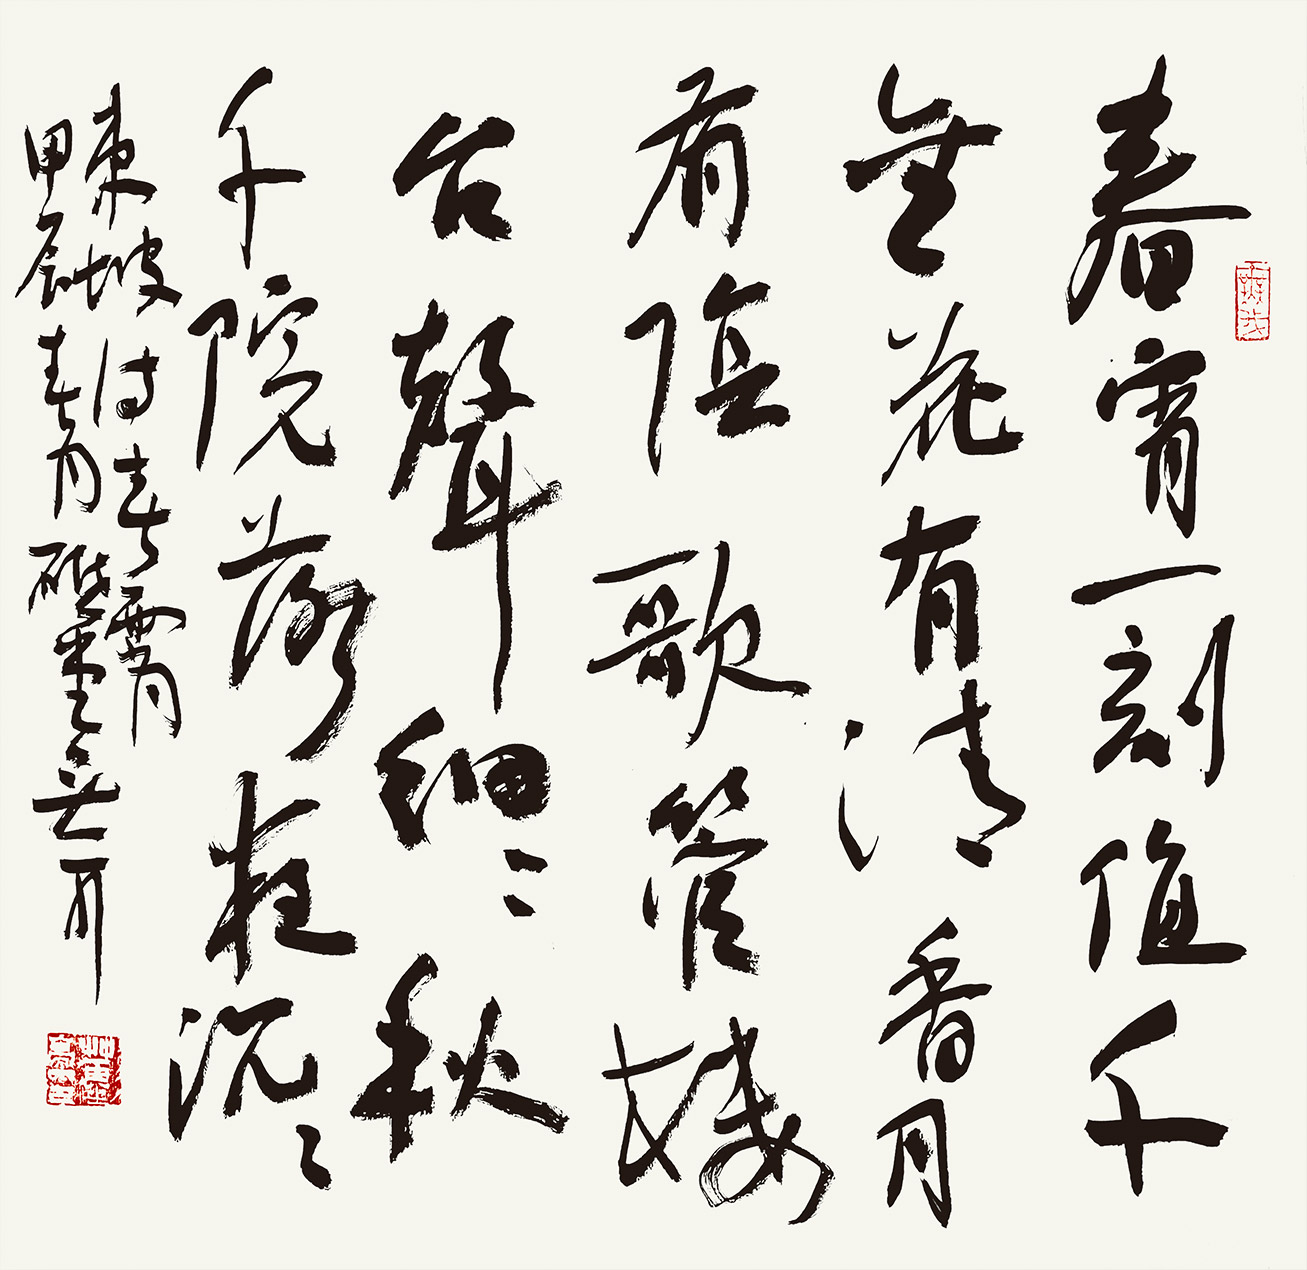 春宵一刻值千
金花有清香月
有陰歌管樓
台聲細〻秋
千院落夜沉〻
東坡詩春宵
甲辰春月